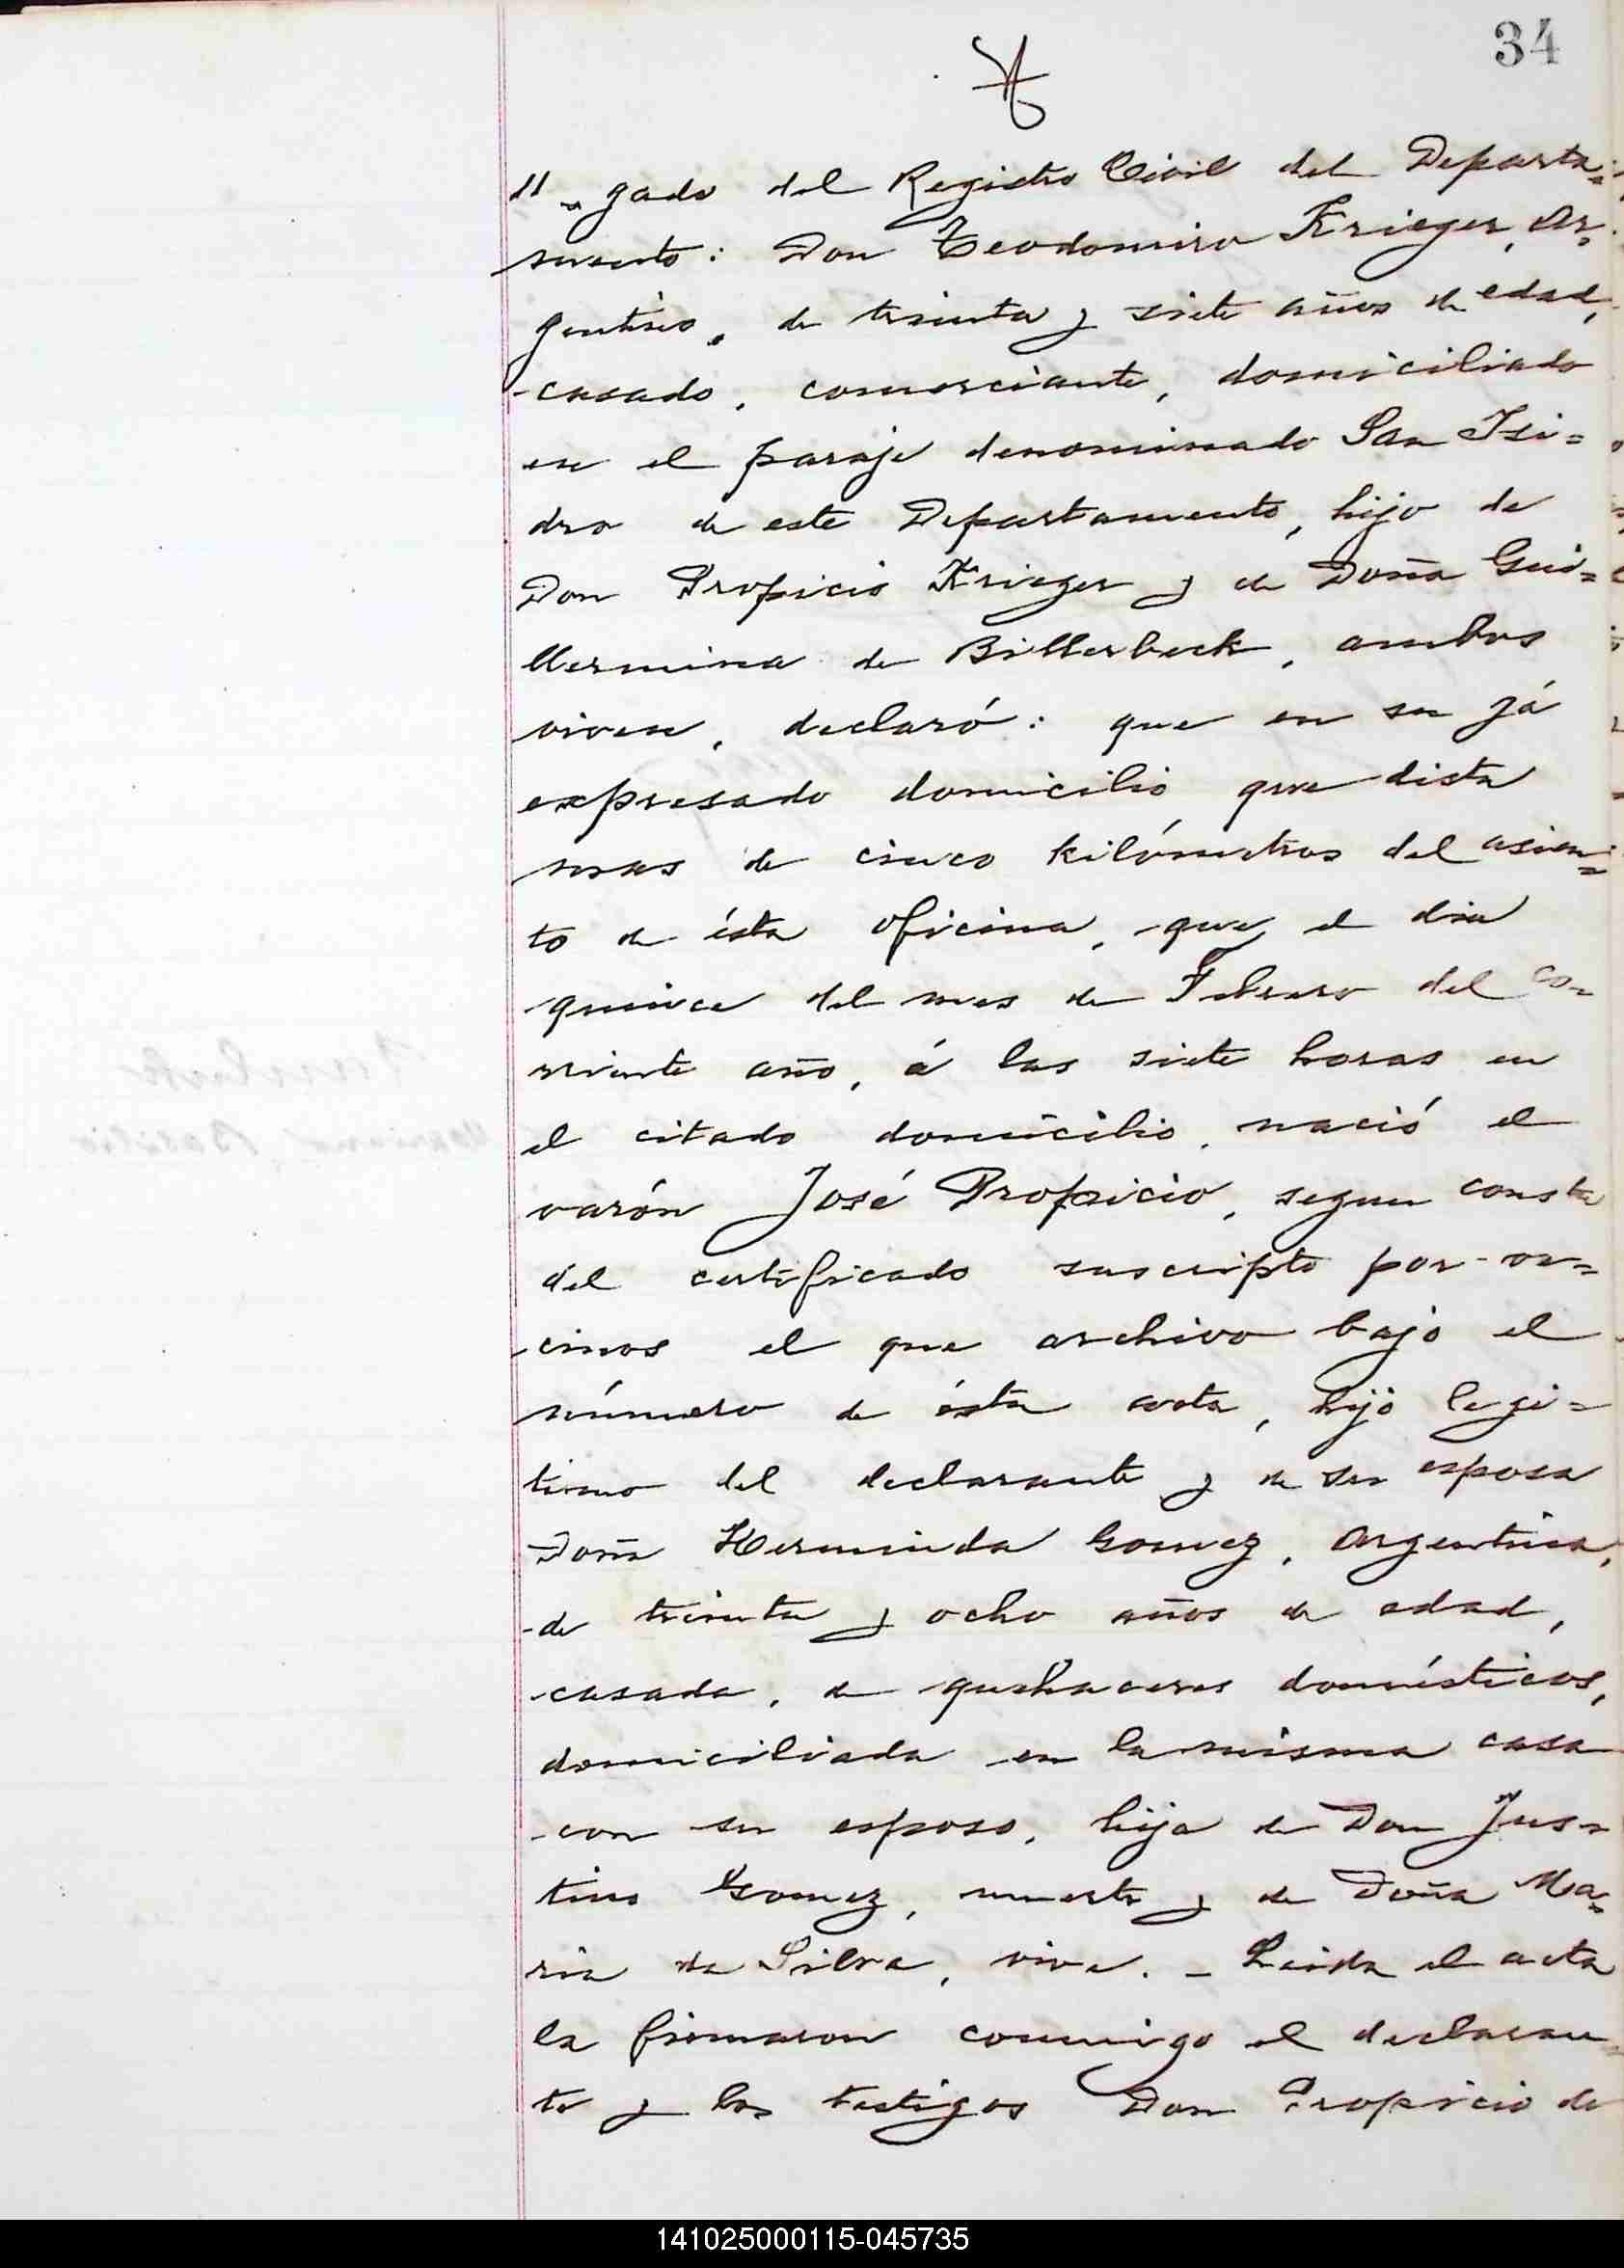 34
" - gado del Registro Civil del Departa=
mento: Don Teodomiro Krieger, Ar=
gentino, de treinta y siete años de edad,
casado, comerciante, domiciliado
en el paraje denominado San Isi=
dro de este Departamento, hijo de
Don Propicio Krieger y de Doña Gui=
llermina de Billerbeck, ambos
viven, declaró: que en su já
expresado domicilio que dista
mas de cinco kilómetros del asien=
to de ésta oficina, que el dia
quince del mes de Febrero del co=
rriente año, á las siete horas en
el citado domicilio, nació el
varón José Propicio, segun consta
del certificado suscripto por ve=
cinos el que archivo bajo el
número de ésta acta, hijo legi=
timo del declarante y de su esposa
Doña Herminda Gomez, Argentina,
de treinta y ocho años de edad,
casada, de quehaceres domésticos,
domiciliada en la misma casa
con su esposo, hija de Don Jus=
tino Gomez, muerto y de Doña Ma=
ria da Silva, vive. - Leida el acta
la firmaron conmigo el declaran
te y los testigos Don Propicio de
141025000115-045735